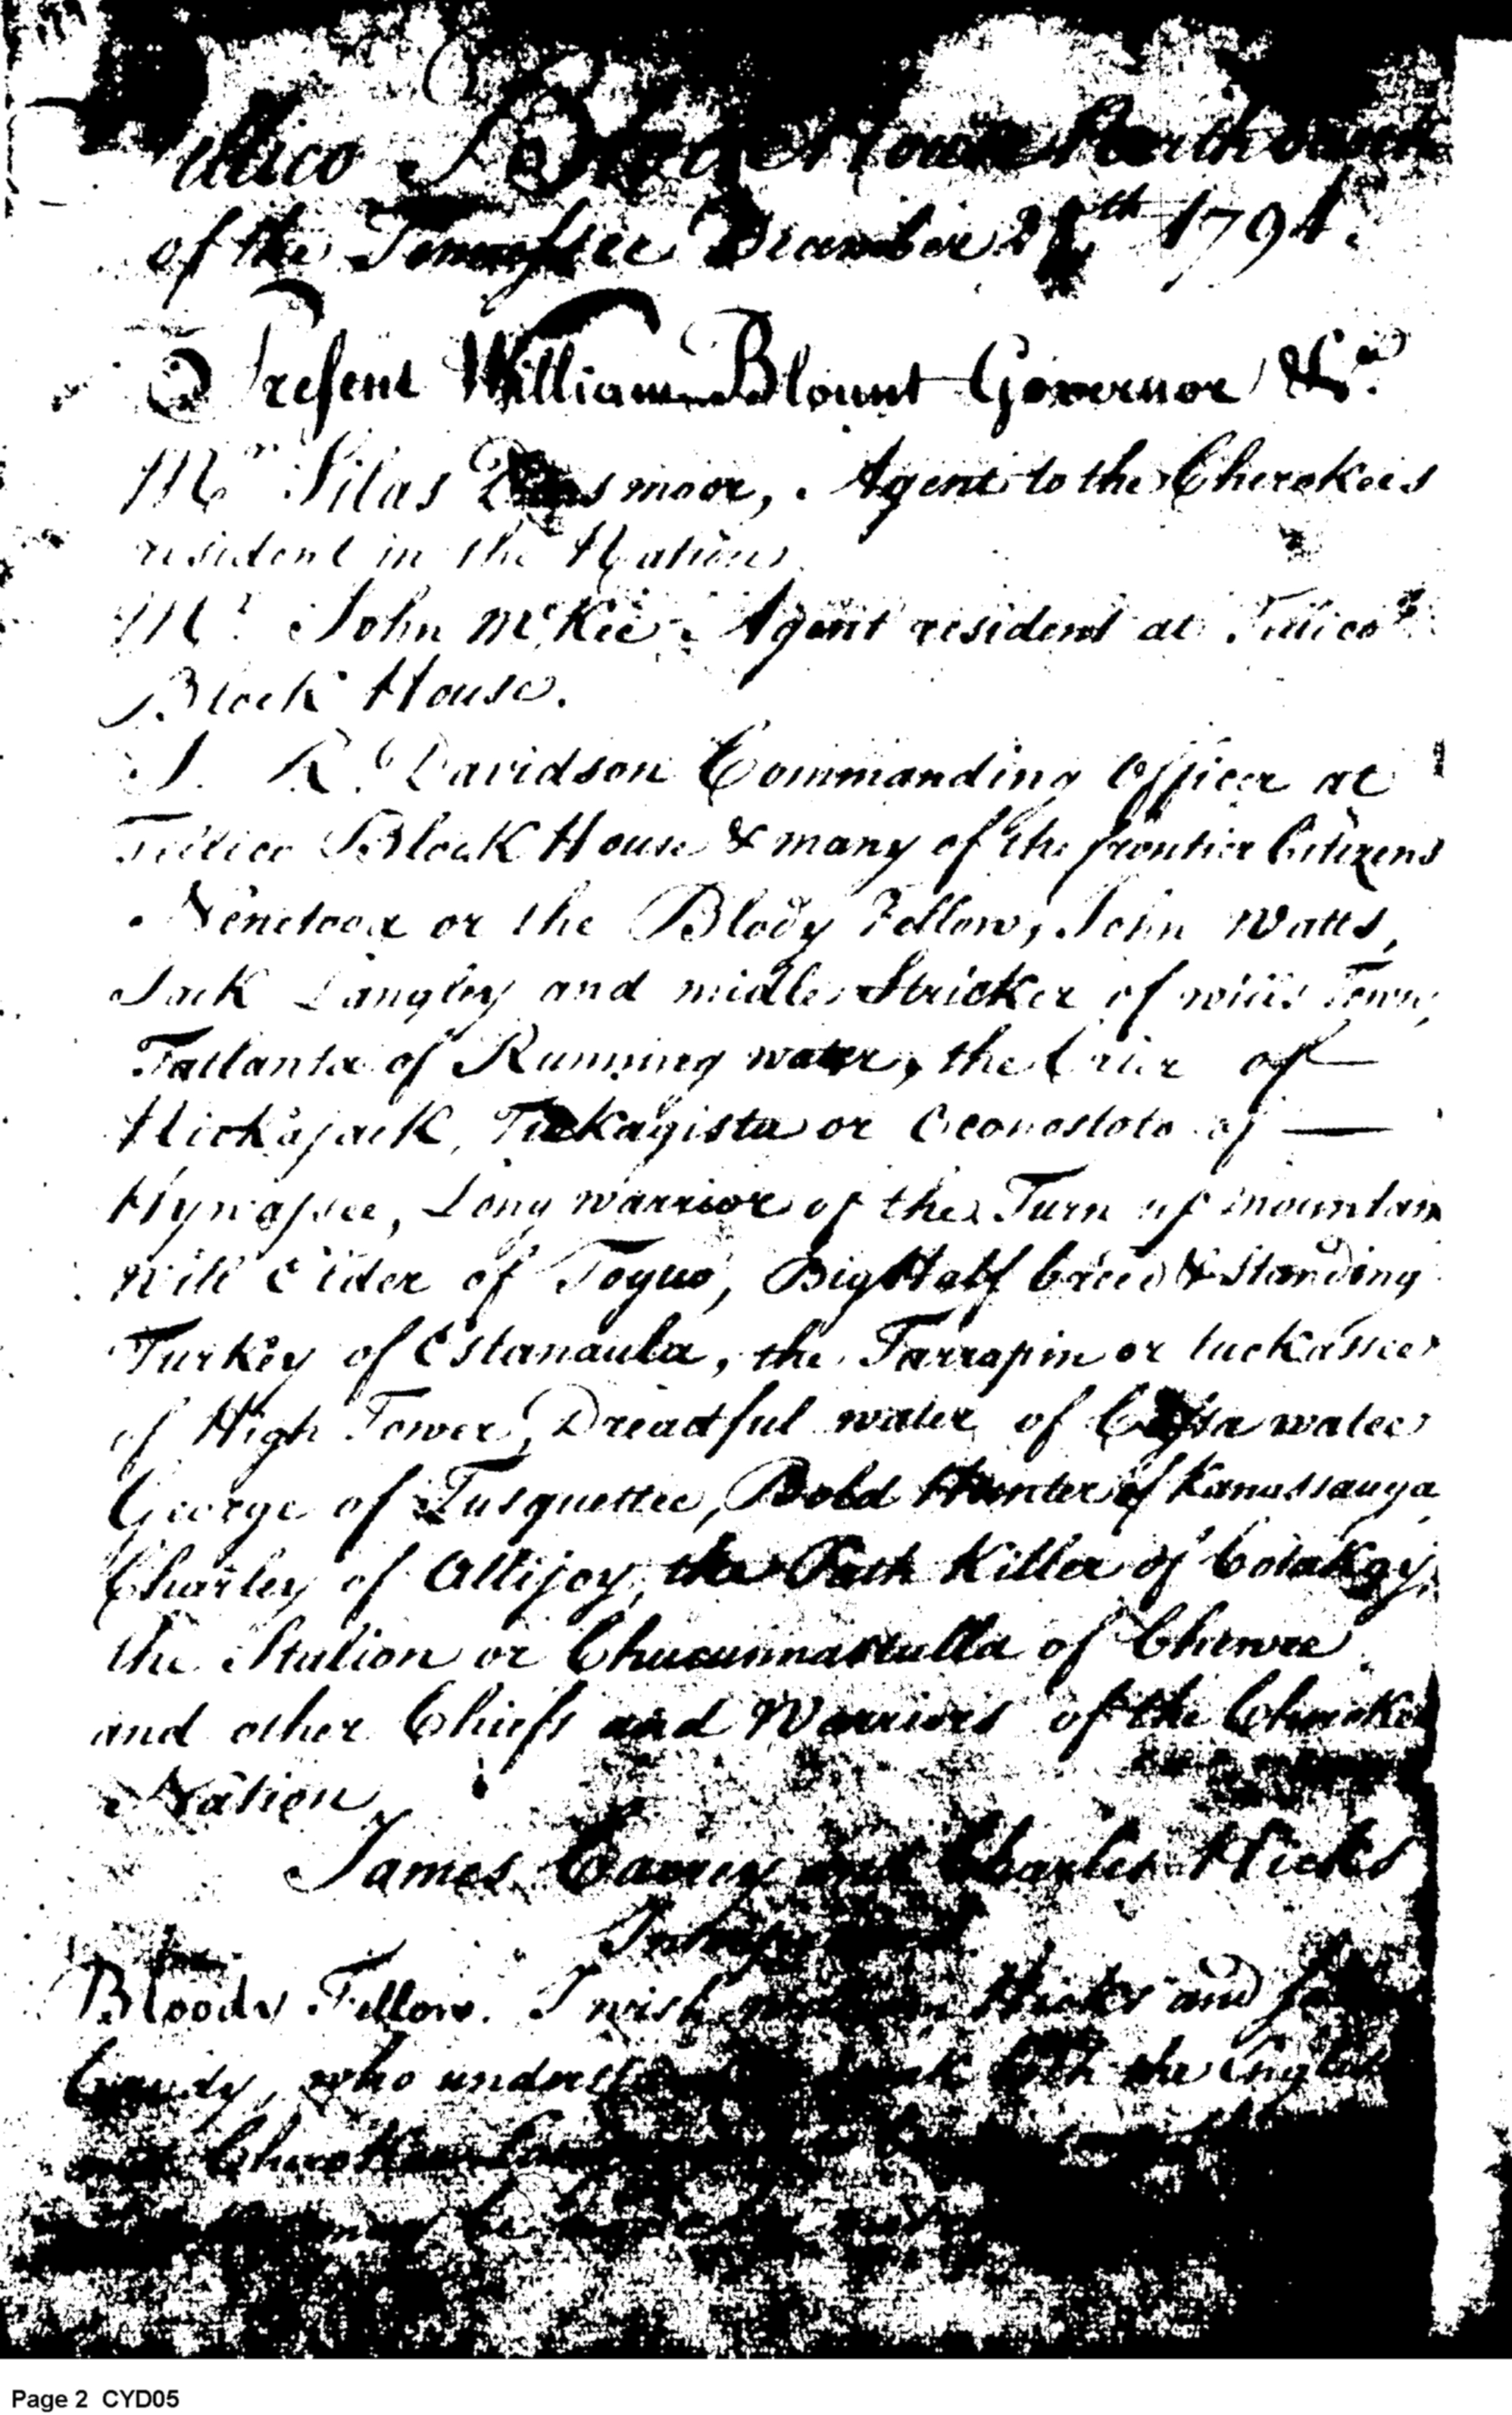 Tellico Block House North bank
of the Tennessee December 28th 1794.
Present William Blount Governor &ca.
Mr Silas Dinsmoor, Agent to the Cherokees
resident in the Nation
Mr. John McKee Agent resident at Tellico
Block House.
J. R. Davidson Commanding Officer at
Tellico Block House & many of the frontier Citizens
Nenetooa or the Blody Fellow, John Watts,
Jack Langley and midle Stricker of wills Town,
Tatlanta of Running water, the Crier of —
Nickajack, Tuckagista or Oconostota of —
Hywassee, Long warrior of the Turn up mountain
Will Elder of Toquo, Big Half breed & Standing
Turkey of Estanaula, the Tarrapin or tuckassee
of High Tower, Dreadful water of water
George of Tusquettee, Bold Hunter of Kanassauga
Charley of Allijoy, the Path Killer of
the Stalion or Chucunnastulla of Chewee
and other Chiefs and Warriors of the Cherokee
Nation
James Carrey and Charles Hicks
Bloody Fellow. I wish Hicks and
who the English
Cherokee
Page 2 CYD05